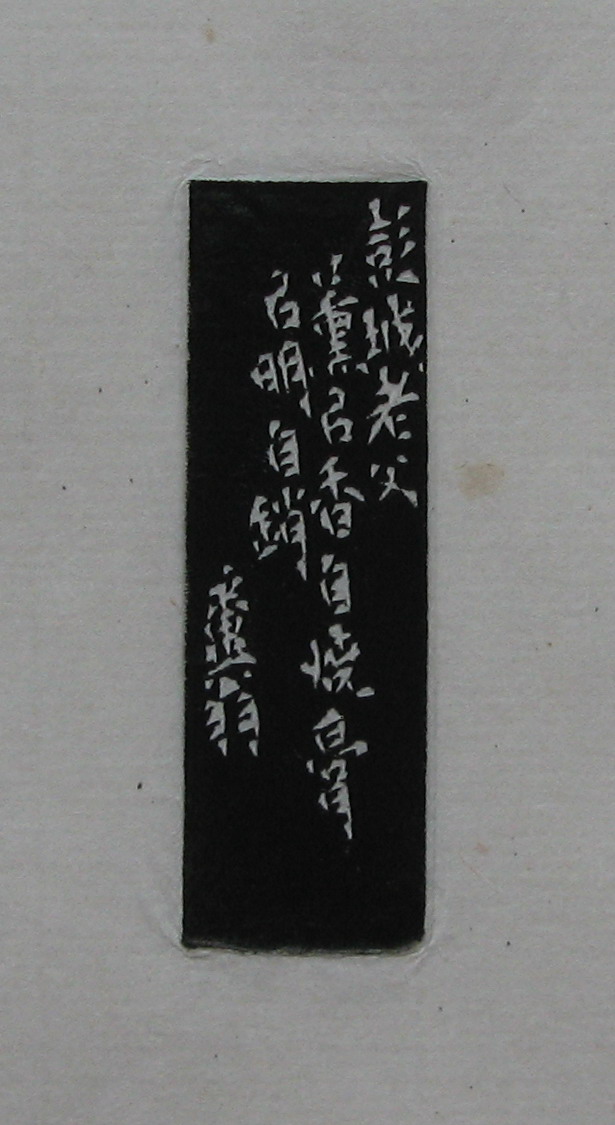 彭城老父
薰㠯香自燒膏
㠯明自銷
糞翁